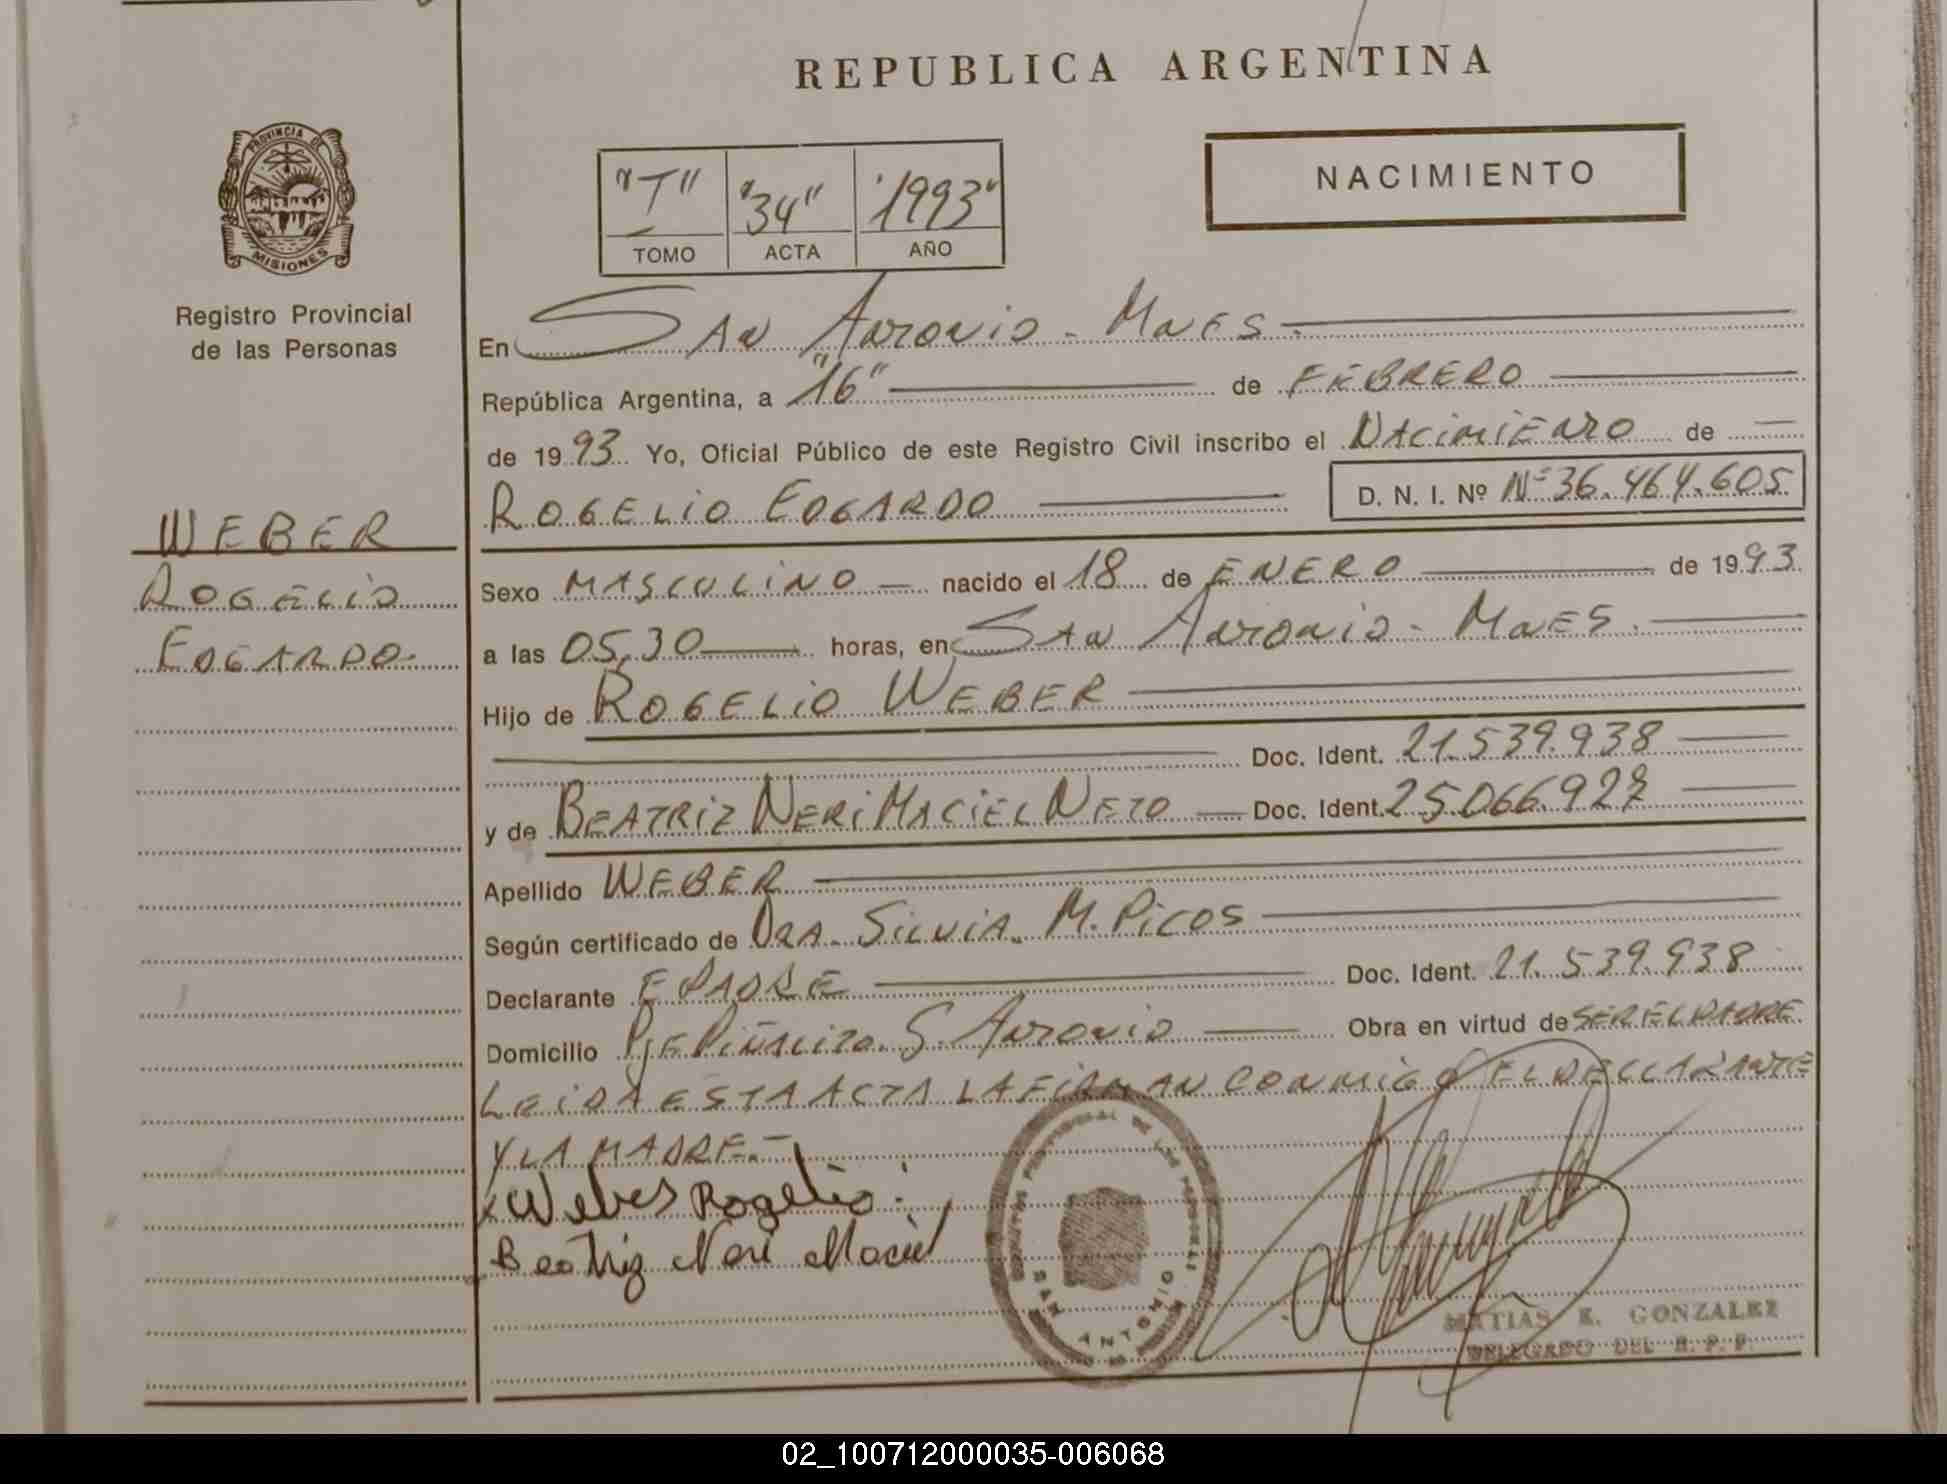 REPUBLICA ARGENTINA
PROVINCIA DE
MISIONES
Registro Provincial
de las Personas
"T" "34" "1993"
TOMO ACTA AÑO
NACIMIENTO
WEBER
ROGELIO
EDGARDO.
En SAN ANTONIO - MNES.
República Argentina, a "16" de FEBRERO
de 1993 Yo, Oficial Público de este Registro Civil inscribo el NACIMIENTO de
ROGELIO EDGARDO D. N. I. Nº Nº 36.464.605
Sexo MASCULINO nacido el 18 de ENERO de 1993
a las 05,30 horas, en SAN ANTONIO - MNES.
Hijo de ROGELIO WEBER
Doc. Ident. 21.539.938
y de BEATRIZ NERI MACIEL NETO Doc. Ident. 25.066.927
Apellido WEBER
Según certificado de DRA. SILVIA. M. PICOS
Declarante E PADRE Doc. Ident. 21.539.938
Domicilio S. ANTONIO Obra en virtud de SER EL PADRE
LEIDA ESTA ACTA LA FIRMAN CONMIGO EL DECLARANTE
Y LA MADRE.-
Weber Rogelio.
Beatriz Neri Maciel
SAN ANTONIO
MATIAS E. GONZALEZ
DELEGADO DEL R. P. P.
02_100712000035-006068